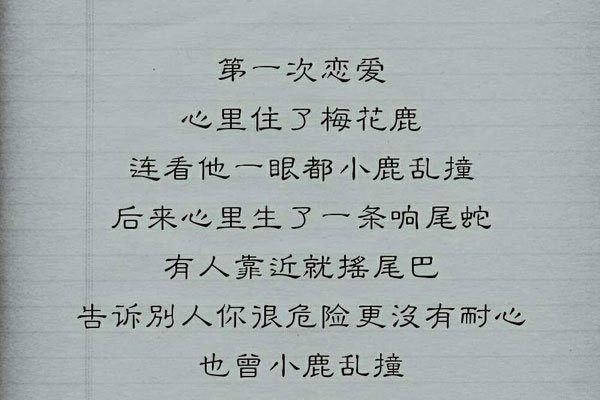 第一次恋爱
心里住了梅花鹿
连看他一眼都小鹿乱撞
后来心里生了一条响尾蛇
有人靠近就摇尾巴
告诉別人你很危险更沒有耐心
也曾小鹿乱撞